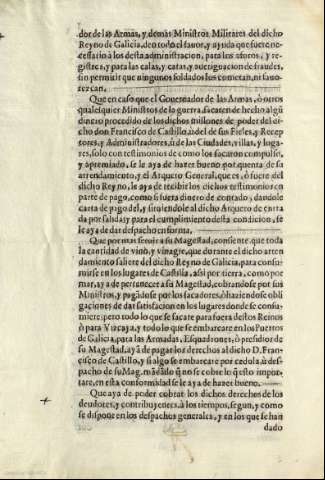 dor de las Armas, y demas Ministros Militares del dicho
Reyno de Galicia, den todo el fauor, y ayuda que fuere ne-
cessario à los desta administracion, para los aforos, y re-
gistros, y para las calas, y catas, y aueriguacion de fraudes,
sin permitir que ningunos soldados los cometan, ni fauo-
rezcan.
Que en caso que el Gouernador de las Armas, ò otros
qualesquier Ministros de lo guerra, sacaren de hecho algũ
dinero procedido de los dichos millones de poder del di-
cho don Francisco de Castillo, ù del de sus Fieles, y Recep
tores, y Administradores, ù de las Ciudades, villas, y luga-
res, solo con testimonios de como los sacaron compulso,
y apremiado, se le aya de hazer bueno por quenta de su
arrendamiento, y el Arquero General, que es, ò fuere del
dicho Reyno, le aya de recibir los dichos testimonios en
parte de pago, como si fuera dinero de contado, dandole
carta de pago del, y siruiendole al dicho Arquero de carta
da por salida, y para el cumplimiento desta condicion, se
le aya de dar despacho en forma.
Que por mas seruir à su Magestad, consiente que toda
la cantidad de vino, y vinagre, que durante el dicho arren
damiento saliere del dicho Reyno de Galicia, para consu-
mirse en los lugares de Castilla, assi por tierra, como por
mar, aya de pertenecer à su Magestad, cobrandose por sus
Ministros, y pagãdose por los sacadores, ò haziendose obli
gaciones de dar satisfacion en los lugares donde se consu-
miere; pero todo lo que se sacare para fuera destos Reinos
ò para Vizcaya, y todo lo que se embarcare en los Puertos
de Galicia, para las Armadas, Esquadrones, ò presidios de
su Magestad, aya de pagar los derechos al dicho D. Fran-
cisco de Castillo, y si algo se embarcare por cedula, ù des-
pacho de su Mag. mãdãdo q̃ no se cobre lo q̃ esto impor-
tare, en esta conformidad se le aya de hazer bueno.
Que aya de poder cobrar los dichos derechos de los
deudores, y contribuyentes, à los tiempos, segun, y como
se dispone en los despachos generales, y en los que se han
dado